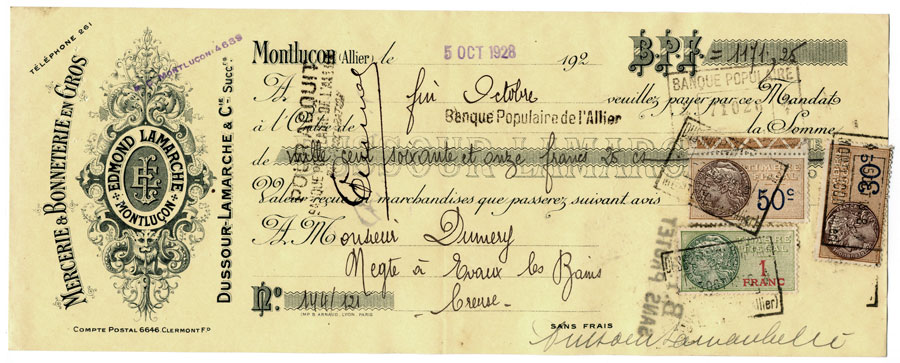 TÉLÉPHONE 261
MERCERIE & BONNETERIE EN GROS
EDMOND LAMARCHE
MONTLUÇON
EL
DUSSOUR-LAMARCHE & Cie Succrs
COMPTE POSTAL 6646. CLERMONT Fd
MONTLUCON: 4689
Montluçon (Allier) le 5 OCT 1928 192
B.P.F. = 1171,25
BANQUE POPULAIRE
A. fin Octobre veuillez payer par ce Mandat
à l'Ordre de Banque Populaire de l'Allier la Somme
POUR ACQUIT
DUSSOUR LAMARCHE
de mille cent soixante et onze francs 25 cs
Valeur reçue en marchandises que passerez suivant avis
A. Monsieur Dumery
Negt à Evaux les Bains
Creuse
No. 144/121
IMP. B. ARNAUD, LYON PARIS
SANS FRAIS
50c
30c
1
FRANC
Allier)
SANS PROTET
B.P.A.